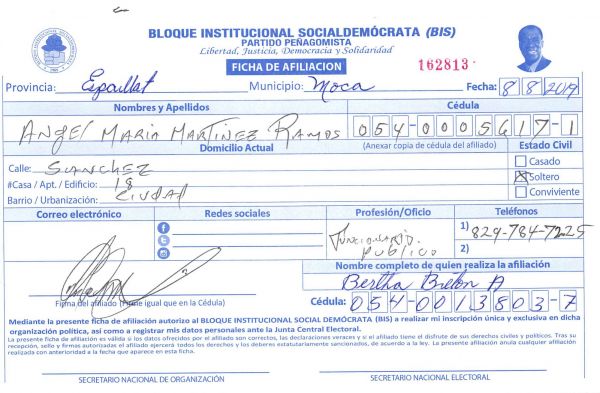 BLOQUE INSTITUCIONAL SOCIALDEMÓCRATA (BIS)
PARTIDO PEÑAGOMISTA
Libertad, Justicia, Democracia y Solidaridad
FICHA DE AFILIACION 162813
Provincia: Espaillat Municipio: Moca Fecha: 8 8 2019
Nombres y Apellidos Cédula
ANGEL MARIA MARTINEZ RAMOS 054-0005617-1
Domicilio Actual (Anexar copia de cédula del afiliado) Estado Civil
Calle: SANCHEZ Casado
#Casa / Apt. / Edificio: 18 Soltero
Barrio / Urbanización: CIUDAD Conviviente
Correo electrónico Redes sociales Profesión/Oficio Teléfonos
FUNCIONARIO PUBLICO 1) 829-784-7225
2)
Nombre completo de quien realiza la afiliación
Bertha Brelon A
Firma del afiliado (Firme igual que en la Cédula) Cédula: 054-0013803-7
Mediante la presente ficha de afiliación autorizo al BLOQUE INSTITUCIONAL SOCIAL DEMÓCRATA (BIS) a realizar mi inscripción única y exclusiva en dicha
organización política, así como a registrar mis datos personales ante la Junta Central Electoral.
La presente afiliación es válida si los datos ofrecidos por el afiliado son correctos, las declaraciones veraces y si el afiliado tiene el disfrute de sus derechos civiles y políticos. Tras su
recepción, sello y firmas autorizadas el afiliado ejercerá todos los derechos y los deberes estatutariamente sancionados, de acuerdo a la ley. La presente afiliación anula cualquier afiliación
realizada con anterioridad a la fecha que aparece en esta ficha.
SECRETARIO NACIONAL DE ORGANIZACIÓN SECRETARIO NACIONAL ELECTORAL